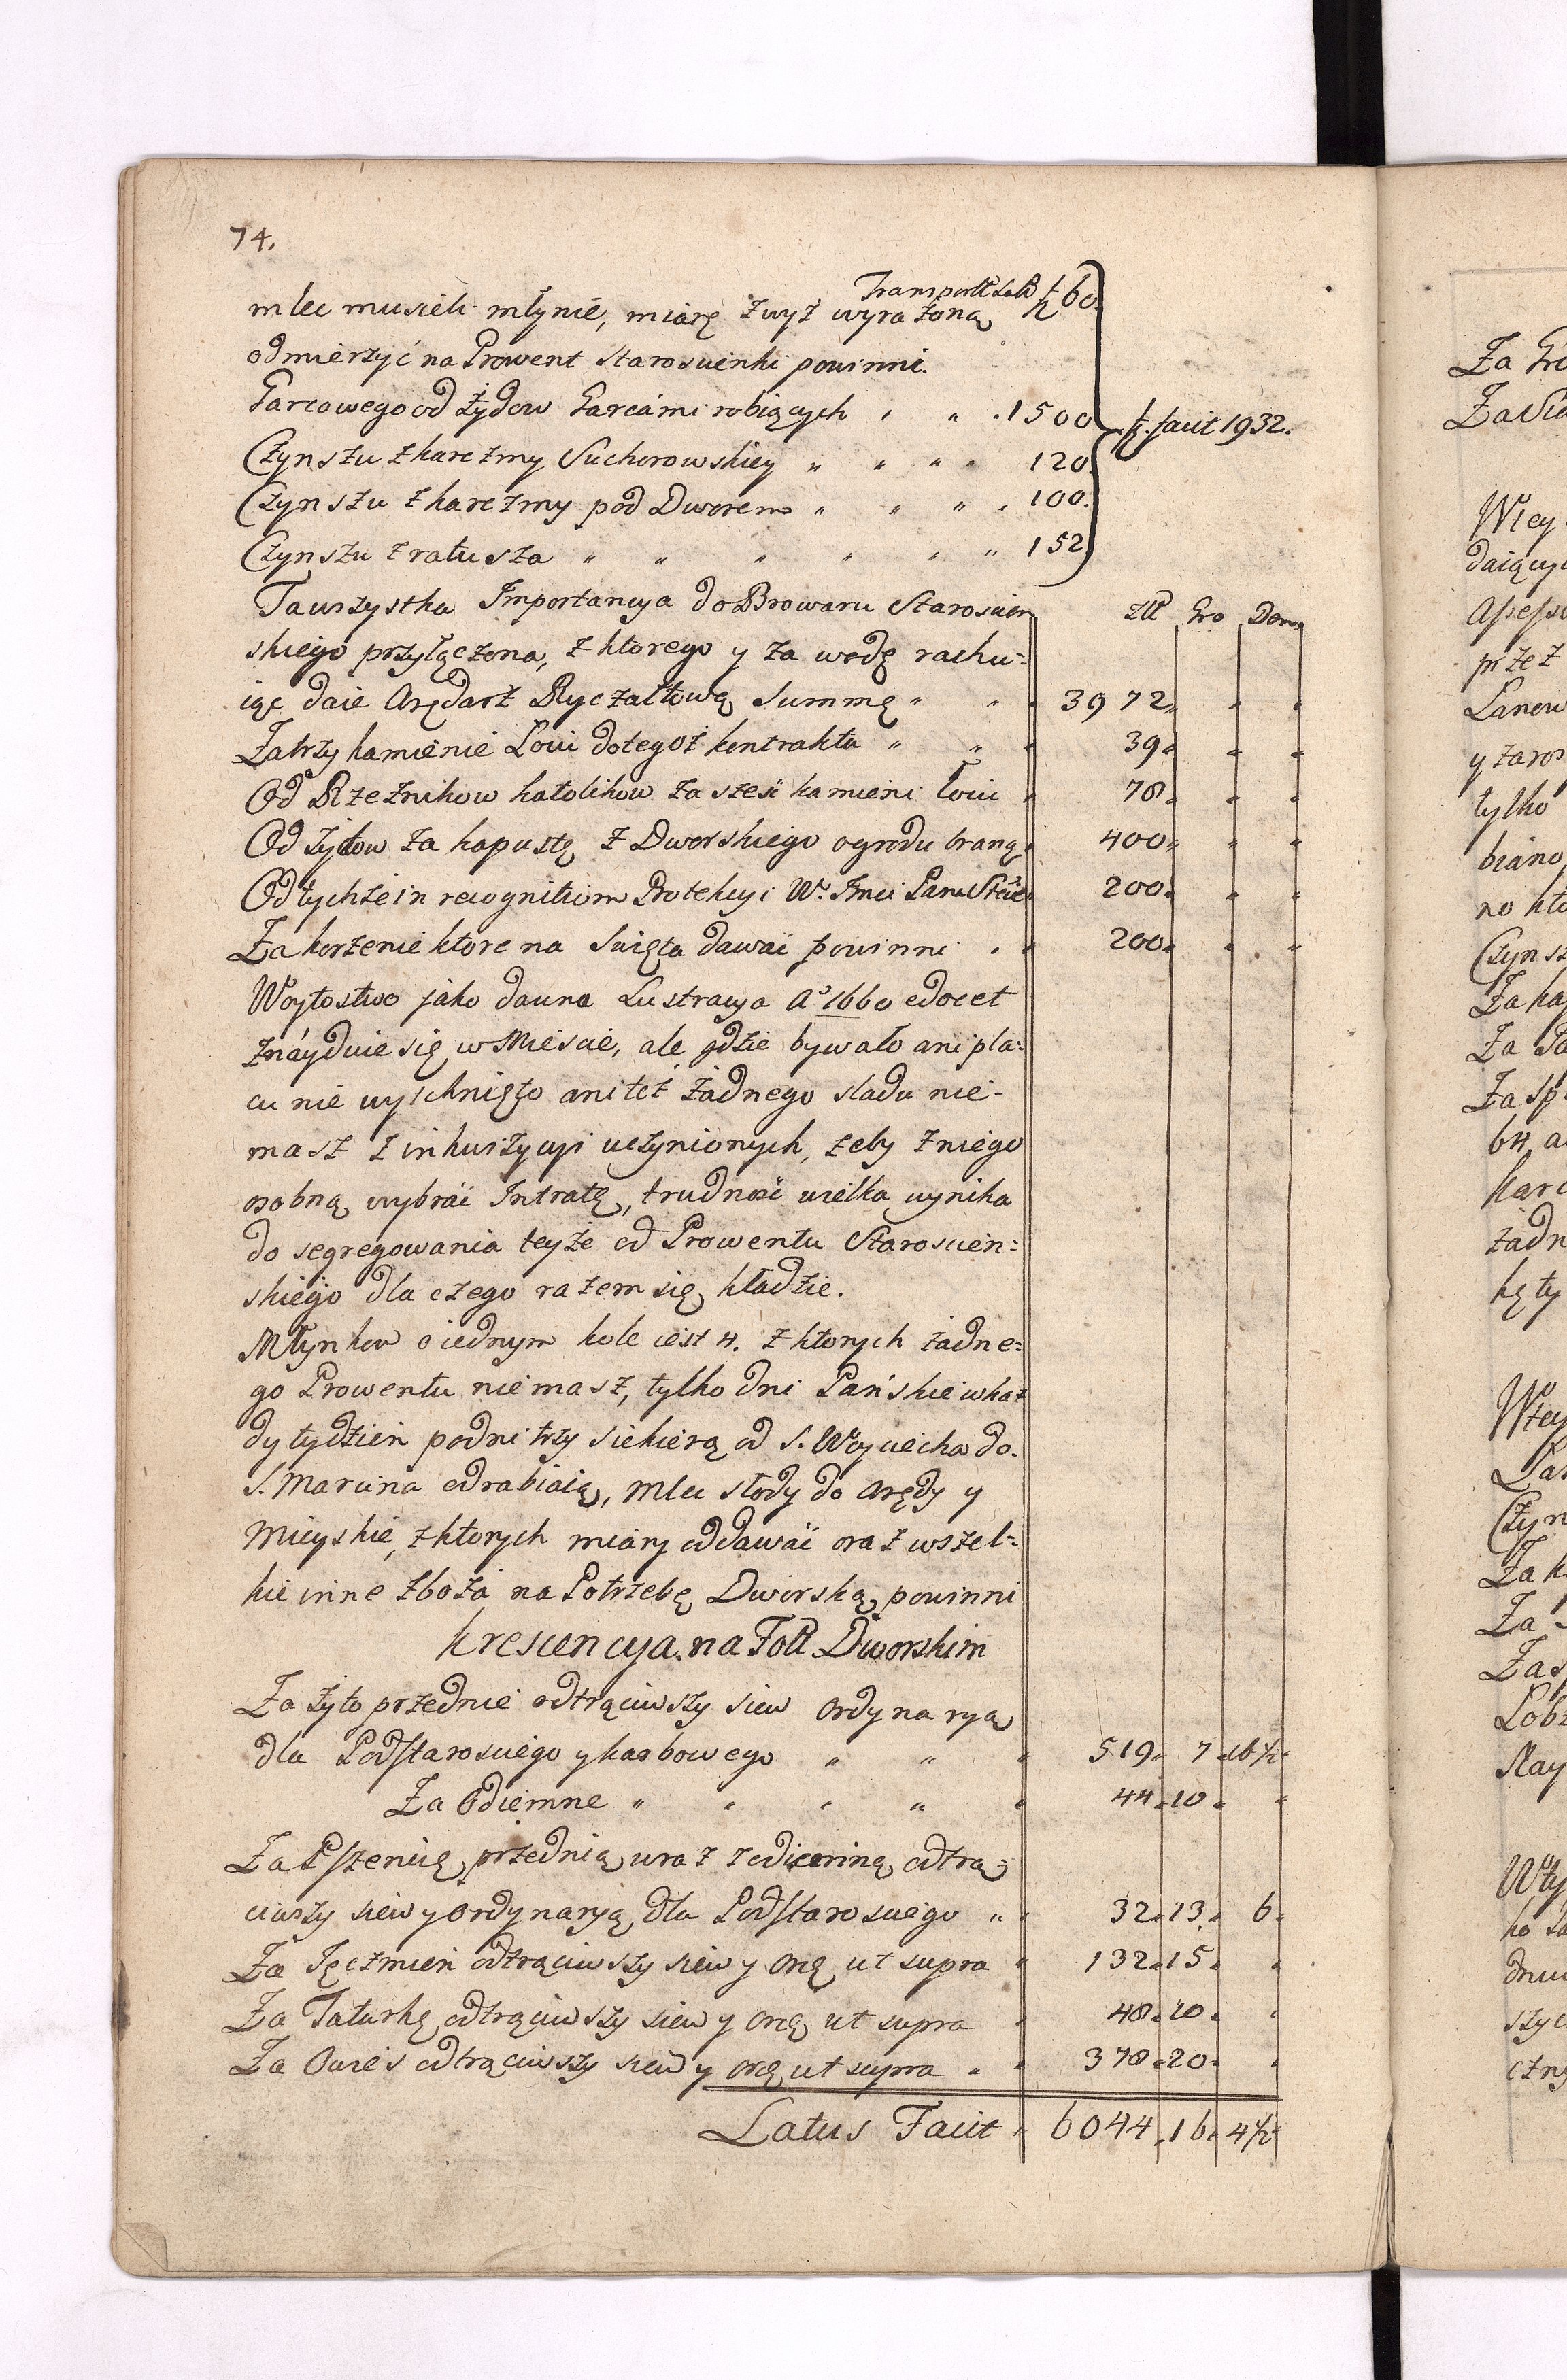 74.
Transport Latt f 60.
mlec musieli młynie, miarę zwyż wyrażoną
odmierzyć na Prowent Staroscinski powinni.
Garcowego od żydow Garcámi robiących " " . 1500
f. facit 1932.
Czynszu z karczmy Suchorowskiey " " " " 120.
Czynszu z karczmy pod Dworem " " " " 100.
Czynszu z ratusza " " " " " " 152
Ta wszystka Importancya do Browaru Staroscin
Złł Gro Den
skiego przyłączona, z ktorego y za wodę rachu=
iąc daie Arędarz Ryczałtową Summę " " 3972 " "
Za trzy kamienie Łoiu do tegoż kontraktu " " 39 " "
Od Rzeznikow katolikow za szesć kamieni Łoiu " 78 " "
Od żydow za kapustę z Dworskiego ogrodu braną 400 " "
Od tychże in recognitiom Protekcyi W. Jmci Pana Stty 200 " "
Za korzenie ktore na Swięta dawać powinni " " 200 " "
Woytostwo jako dawna Lustracya Aº 1660 edocet
znáyduie się w Miescie, ale gdzie bywało ani pla=
cu nie wyschnięło ani też żadnego sladu nie-
masz z inkwizycyi uczynionych, żeby z niego
osobną wybrać Intratę, trudność wielka wynika
do segregowania teyże od Prowentu Staroscin=
skiego dla czego razem się kładzie.
Młynkow o iednym kole iest 4. z ktorych żadne=
go Prowentu nie masz, tylko dni Pańskie w każ
dy tydzień po dni trzy siekierą od S. Woyciecha do.
S. Marcina odrabiaią, mleć słody do Arędy y
Mieyskie, z ktorych miary oddawać oraz wszel=
kie inne zboża na Potrzebę Dworską powinni
Krescencya na Foll Dworskim
Za żyto przednie odtrąciwszy siew Ordynaryą
dla Podstarosciego y karbowego " " " 519 " 7 " 16 1/2
Za Odiemne " " " " " 44 " 10 " "
Za Pszenicę przednią wraz z odiemną odtrą=
ciwszy siew y Ordynaryą dla Podstarosciego " " 32 " 13 " 6
Za Jęczmień odtrąciwszy siew y Orę ut supra " 132 " 15 " "
Za Tatarkę odtrąciwszy siew y Orę ut supra " 48 " 20 " "
Za Owies odtrąciwszy siew y Orę ut supra " " 378 " 20 " "
Latus Facit " 6044 " 16 " 4 1/2